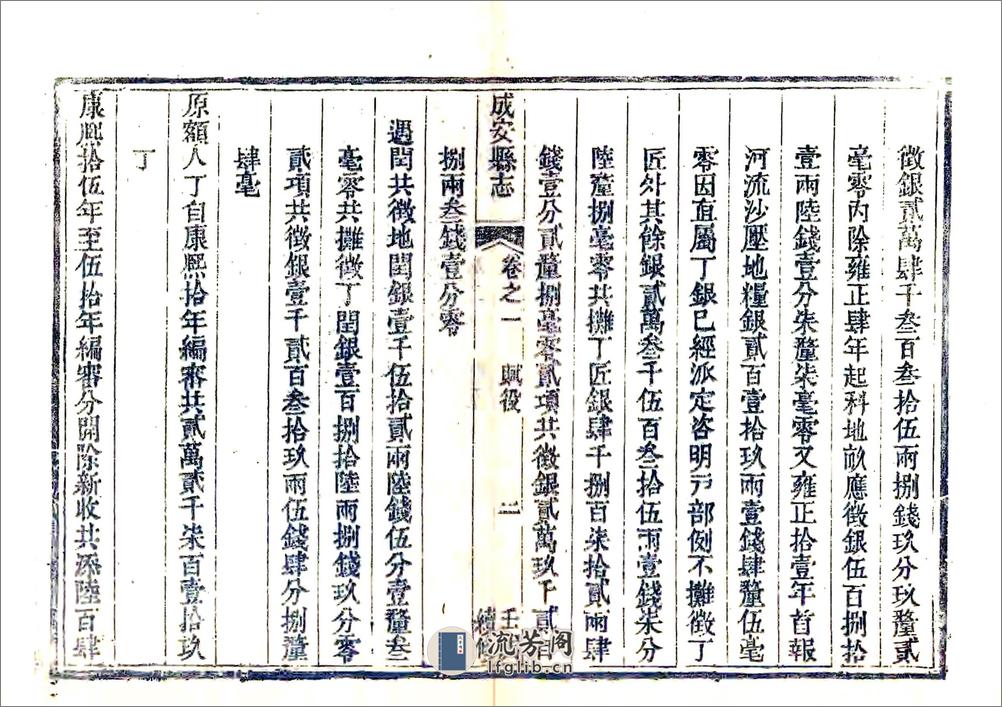 徵銀貳萬肆千叁百叁拾伍兩捌錢玖分玖釐貳
毫零內除雍正肆年起科地畝應徵銀伍百捌拾
壹兩陸錢壹分柒釐柒毫零又雍正拾壹年首報
河流沙壓地糧銀貳百壹拾玖兩壹錢肆釐伍毫
零因直屬丁銀已經派定咨明戸部例不攤徵丁
匠外其餘銀貳萬叁千伍百叁拾伍兩壹錢柒分
陸釐捌毫零共攤丁匠銀肆千捌百柒拾貳兩肆
錢壹分貳釐捌毫零貳項共徵銀貳萬玖千貳百
成安縣志 卷之一 賦役 二 壬 續修
捌兩叁錢壹分零
遇閏共徵地閏銀壹千伍拾貳兩陸錢伍分壹釐叁
毫零共攤徵丁閏銀壹百捌拾陸兩捌錢玖分零
貳項共徵銀壹千貳百叁拾玖兩伍錢肆分捌釐
肆毫
原額人丁自康熙拾年編審共貳萬貳千柒百壹拾玖
丁
康熙拾伍年至伍拾年編審分開除新收共添陸百肆
流芳閣
lfglib.cn